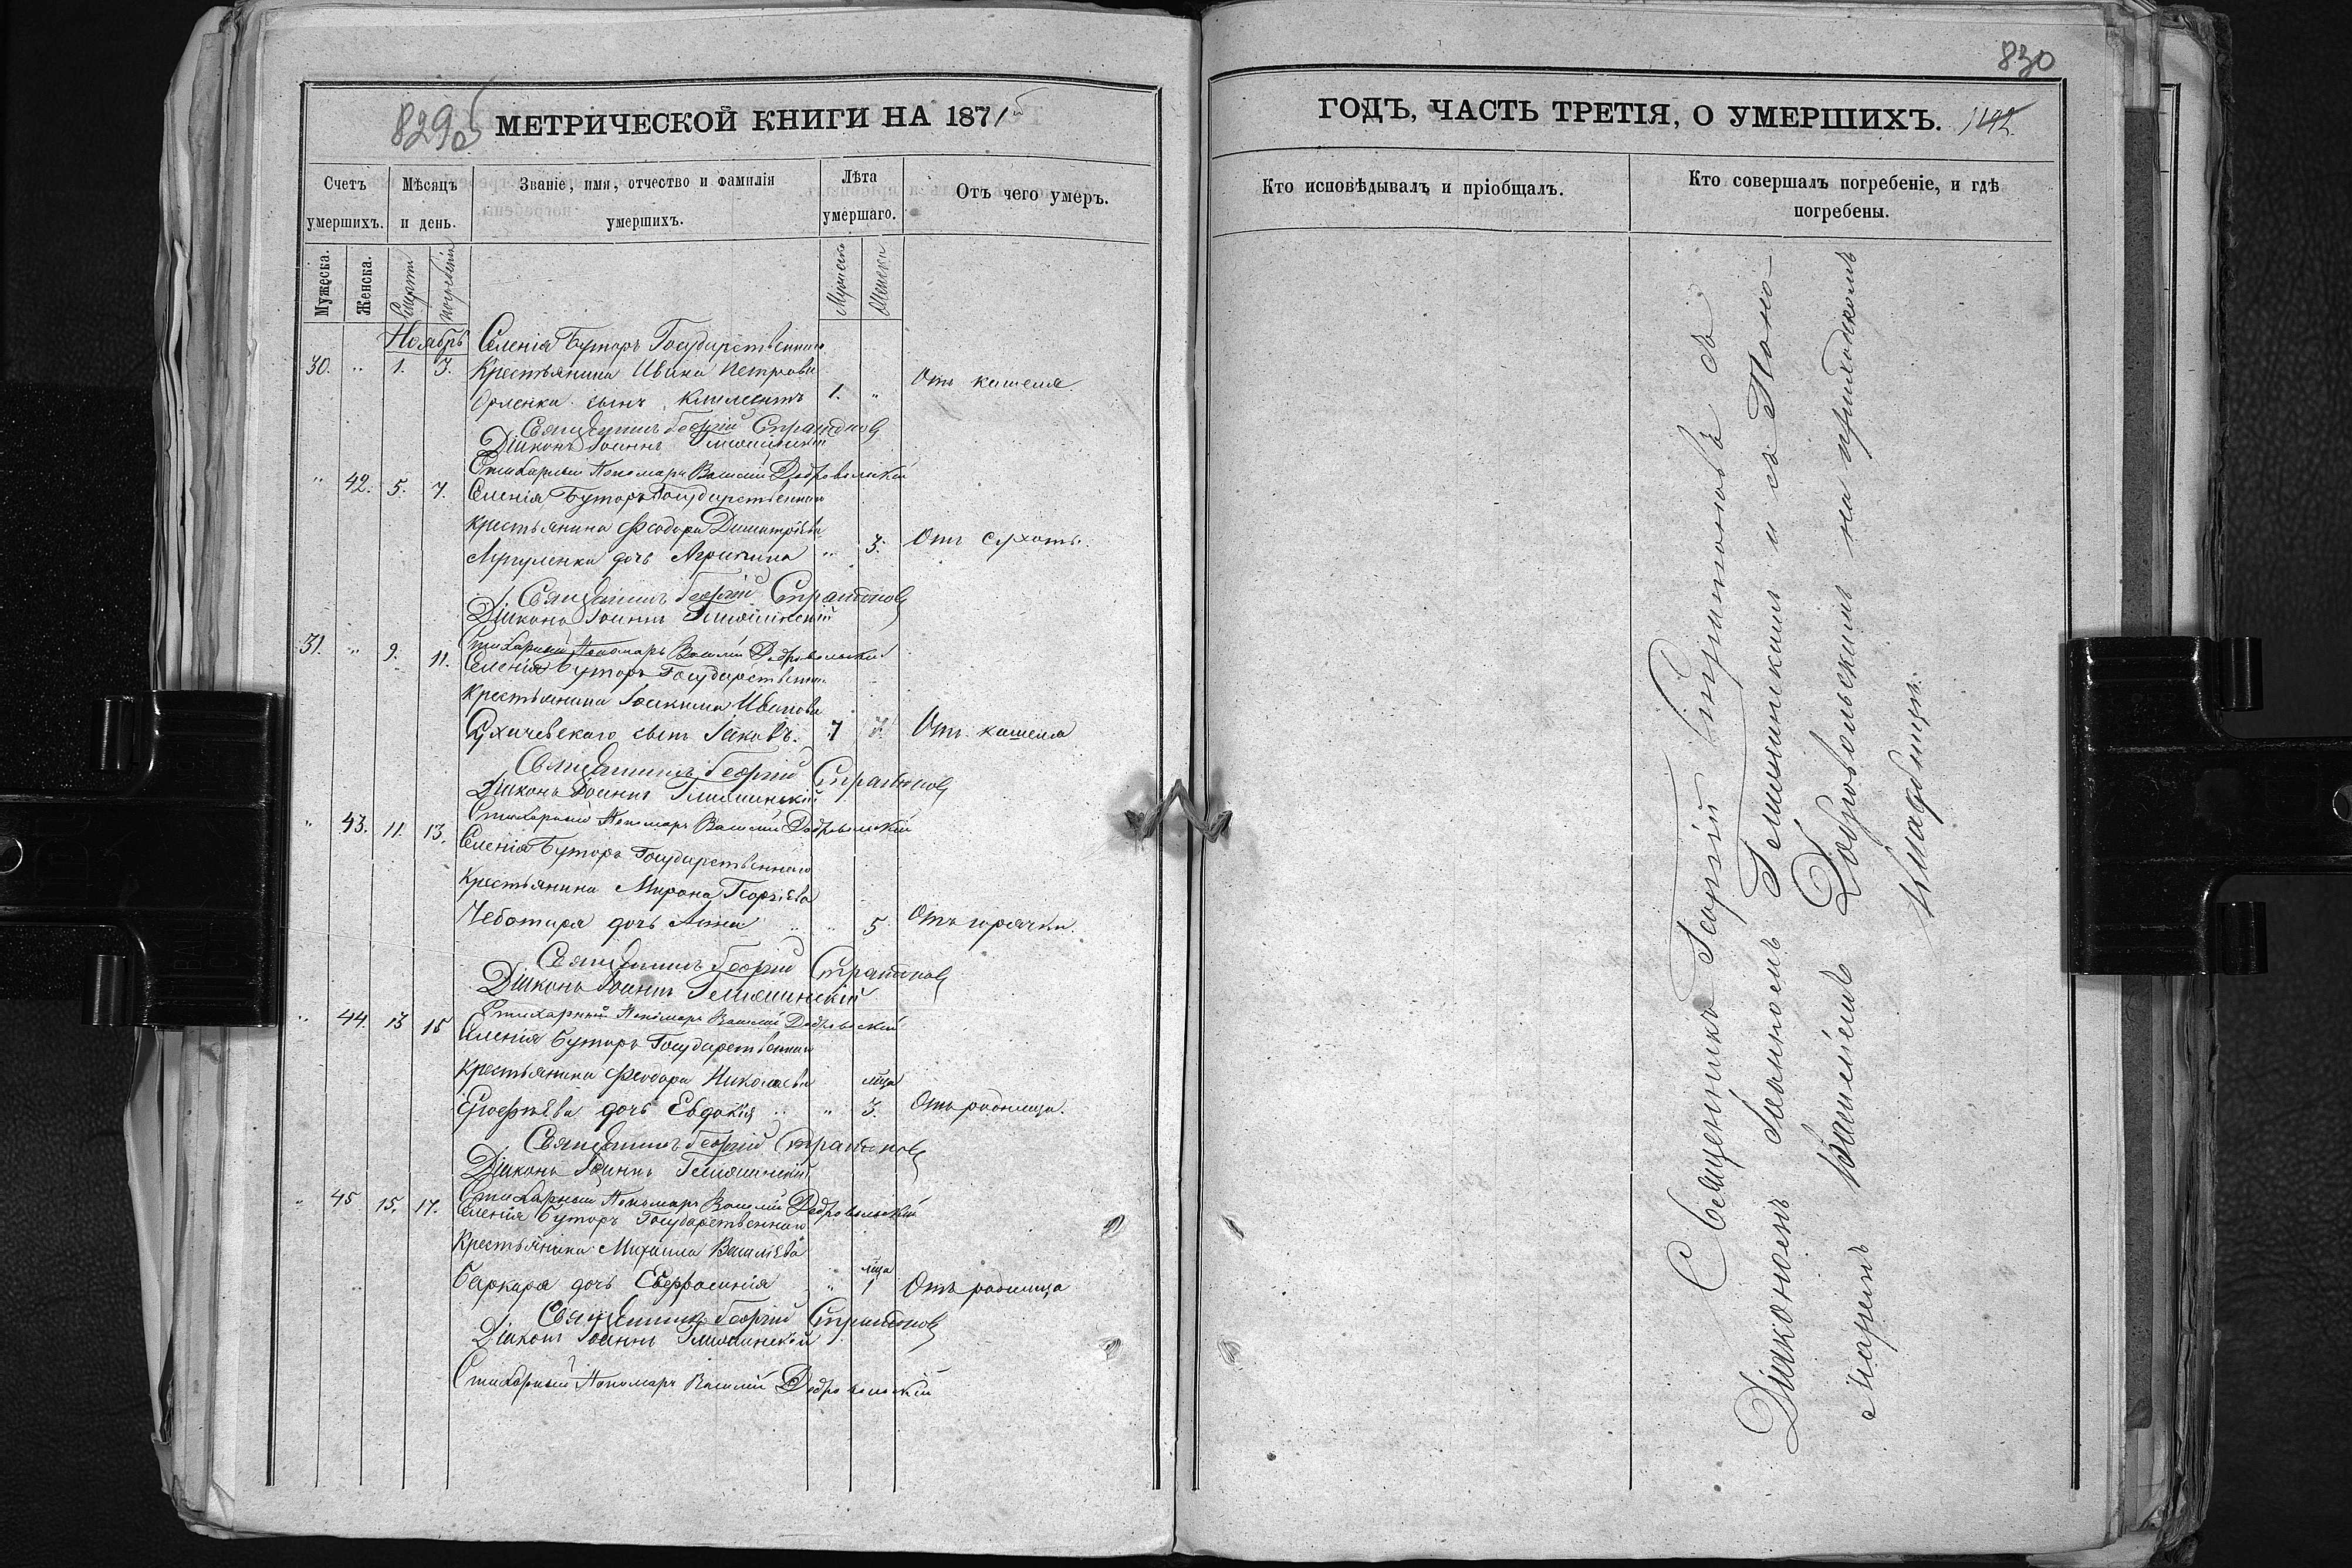 829об
МЕТРИЧЕСКОЙ КНИГИ НА 1871й
Счетъ умершихъ.
Мѣсяцъ и день.
Званіе, имя, отчество и фамилія умершихъ.
Лѣта умершаго.
Отъ чего умеръ.
Мужеска.
Женска.
Смерти
погребенія
Мужеска
Женска
Ноябрь
Селенія Буторъ Государственнаго
30. " 1. 3. Крестьянина Ивана Петрова
сынъ Климентъ 1. " Отъ кашеля
Священникъ Георгій Стратоновъ
Діаконъ Іоаннъ
Стихарный Пономарь Василій Добровольскій
" 42. 5. 7. Селенія Буторъ Государственнаго
крестьянина Феодора Димитріева
дочь Агрипина " 3. Отъ сухоты.
Священникъ Георгій Стратоновъ
Діаконъ Іоаннъ
Стихарный Пономарь Василій Добровольскій
31. " 9. 11. Селенія Буторъ Государственнаго
крестьянина Іоакима Иванова
сынъ Іаковъ. 7 Отъ кашеля
Священникъ Георгій Стратоновъ
Діаконъ Іоаннъ
Стихарный Пономарь Василій Добровольскій
" 43. 11. 13. Селенія Буторъ Государственнаго
крестьянина Мирона Георгіева
Чеботаря дочь Анна " 5 Отъ горячки.
Священникъ Георгій Стратоновъ
Діаконъ Іоаннъ
Стихарный Пономарь Василій Добровольскій
" 44. 13 15 Селенія Буторъ Государственнаго
крестьянина Феодора Николаева
дочь Евдокія " мца 3. Отъ родимца.
Священникъ Георгій Стратоновъ
Діаконъ Іоаннъ
Стихарный Пономарь Василій Добровольскій
" 45 15. 17. Селенія Буторъ Государственнаго
Крестьянина Михаила Василіева
Баркаря дочь Евфросинія " мца 1 Отъ родимца
Священникъ Георгій Стратоновъ
Діаконъ Іоаннъ
Стихарный Пономарь Василій Добровольскій
830
ГОДЪ, ЧАСТЬ ТРЕТІЯ, О УМЕРШИХЪ.
Кто исповѣдывалъ и пріобщалъ.
Кто совершалъ погребеніе, и гдѣ погребены.
Священникъ Георгій Стратоновъ съ
Діакономъ Іоанномъ и съ Поно-
маремъ Василіемъ Добровольскимъ на приходскомъ
кладбищѣ.